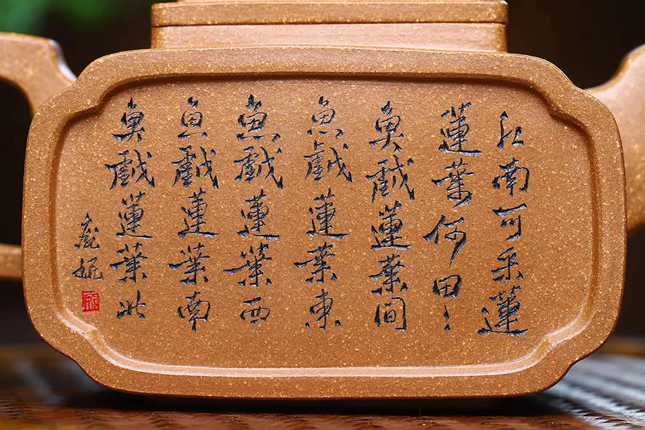 江南可采蓮
蓮葉何田〻
魚戯蓮葉間
魚戯蓮葉東
魚戯蓮葉西
魚戯蓮葉南
魚戯蓮葉北